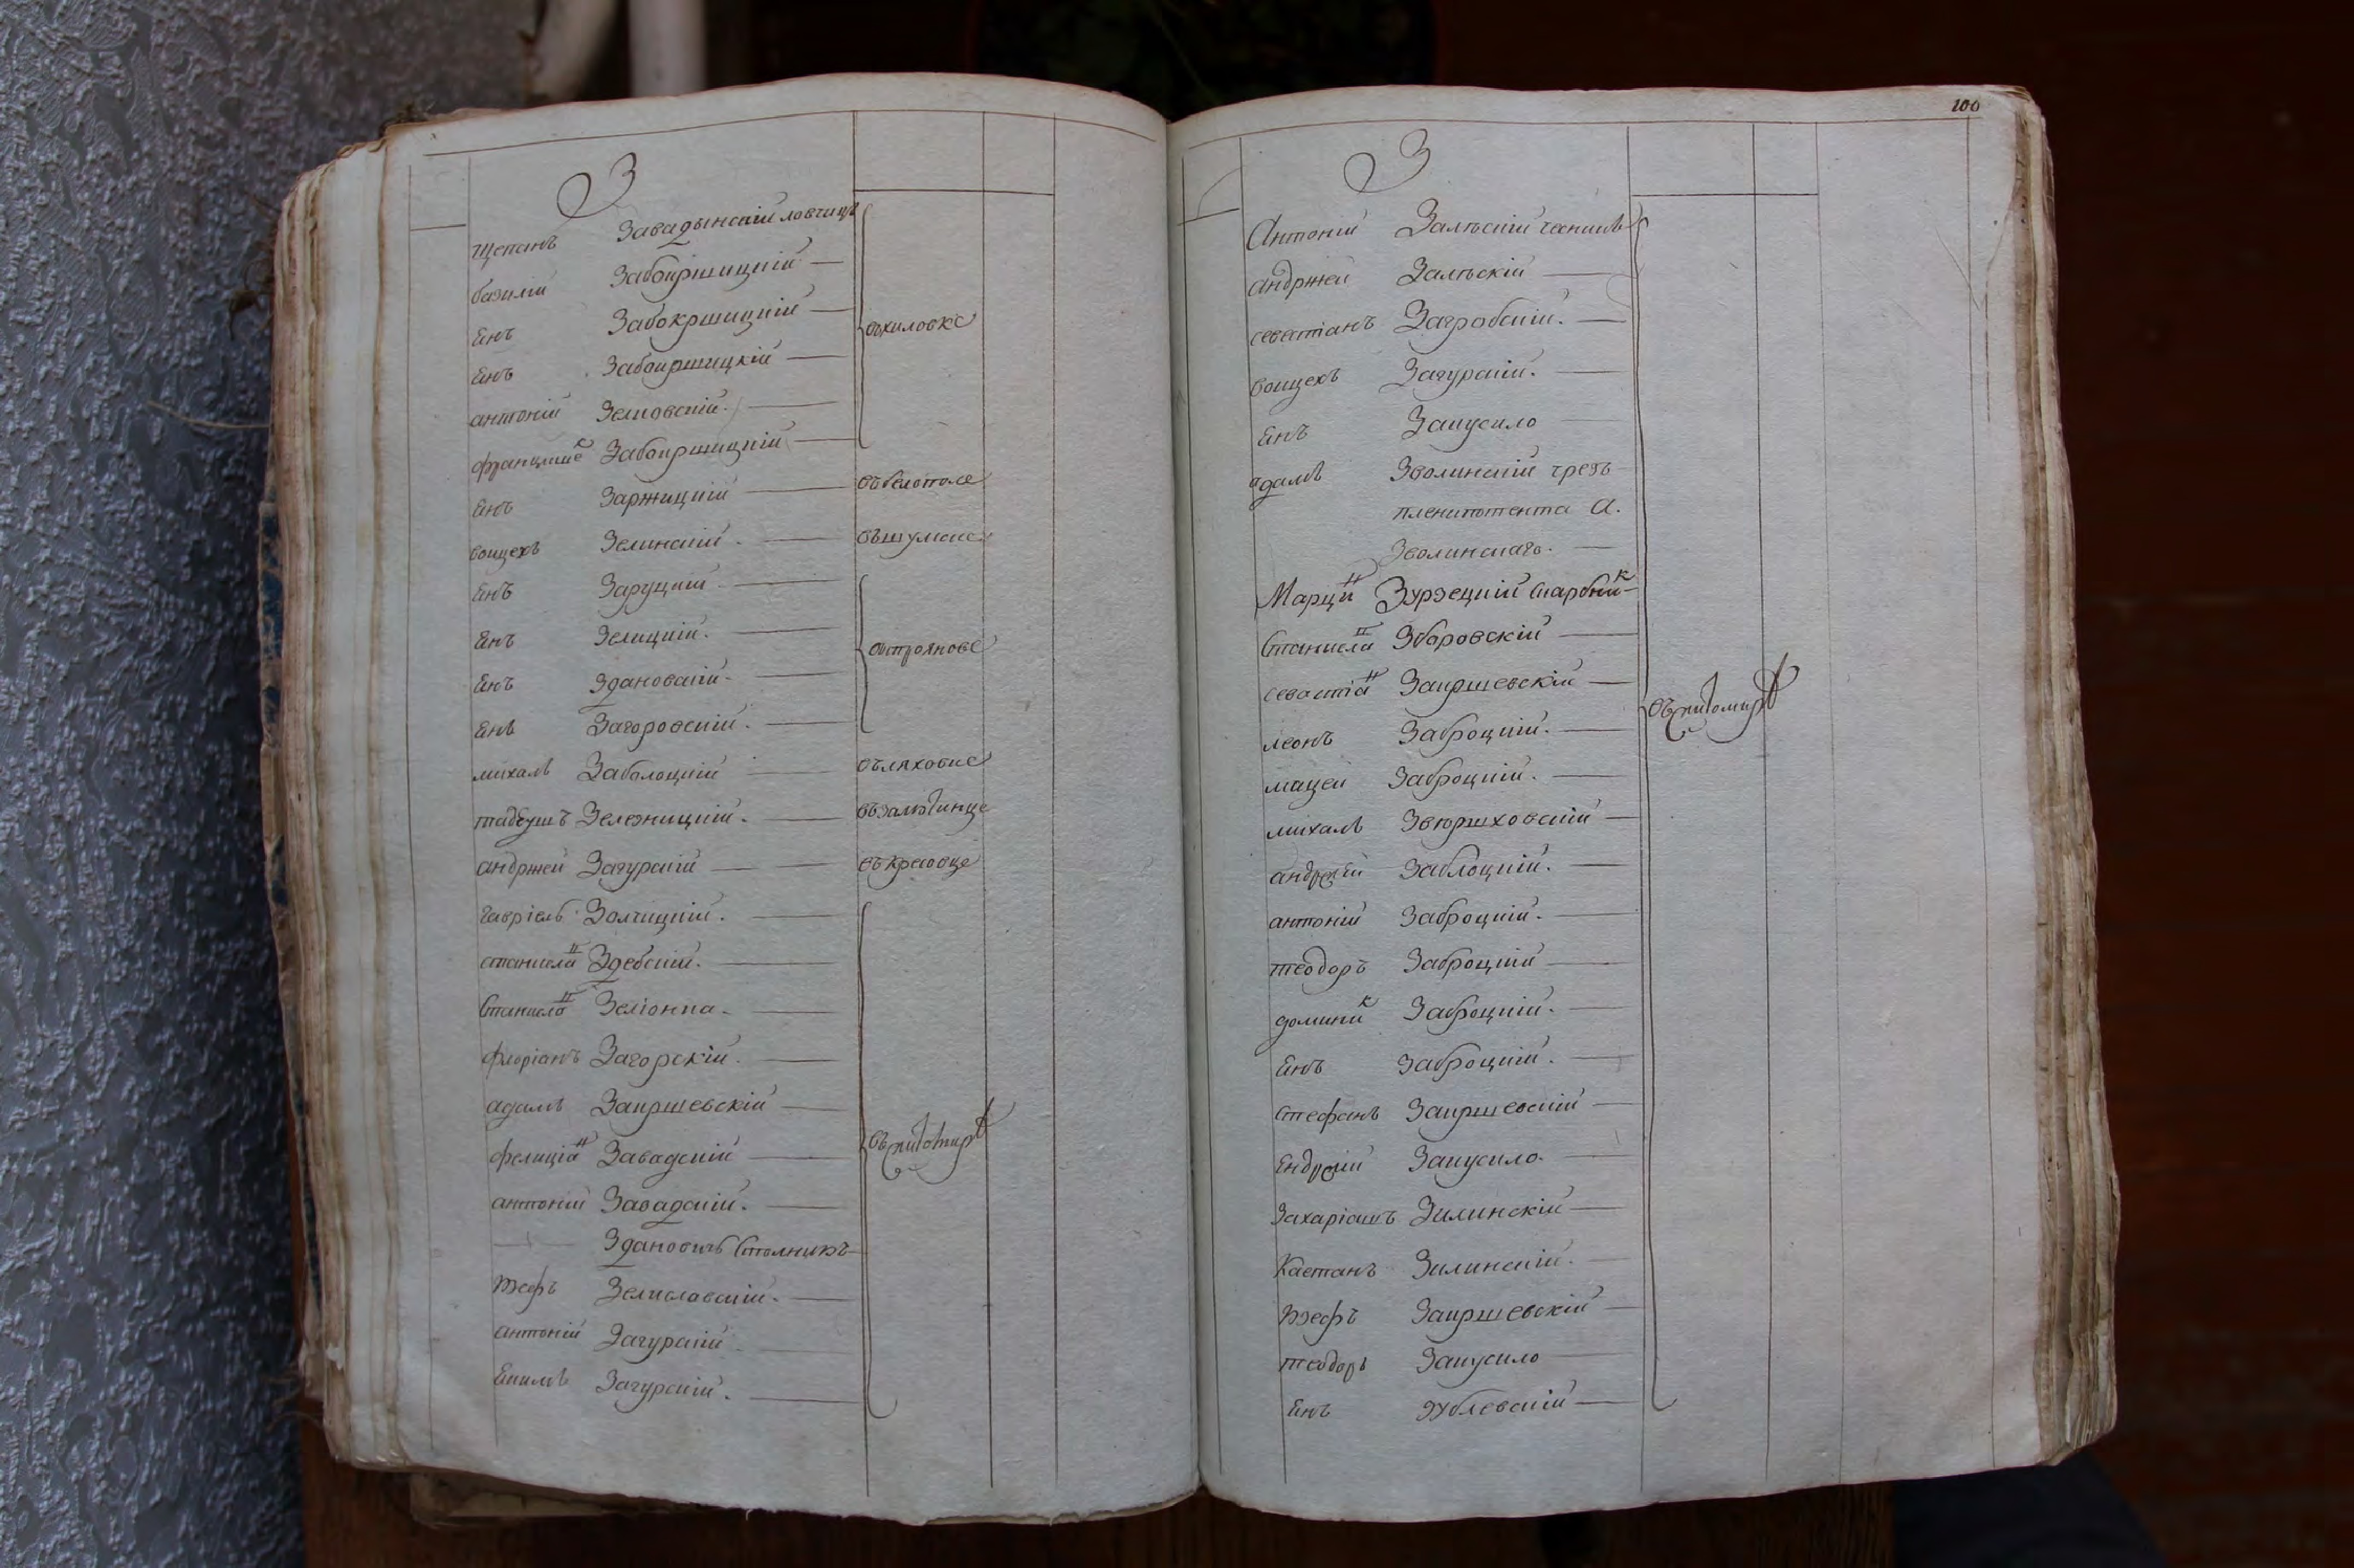 З
Щепанъ Завадынскій ловчицъ
базилій Забокршицкій
Енъ Забокршицкій
въхиловке
Енъ Забокршицкій
антоній Зелковскій.
францишек Забокршицкій
Енъ Заржицкій въбелополе
воицехъ Зелинскій. въшумске
Енъ Заруцкій
Енъ Зелицкій.
втрояновѣ
Енъ Здановскій
Енъ Загоровскій.
михалъ Заболоцкій въляховце
тадеушъ Зелезницкій.
андржей Загурскій въкрасовце
Гавріель Золчицкій.
станисла Здебскій.
Станисла Зеліонка
флоріанъ Загорскій.
адамъ Закршевскій
фелиціан Завадскій
въжитомирѣ
антоній Завадскій.
Здановичъ Столникъ
юзефъ Зелиславскій.
антоній Загурскій
Екимъ Загурскій.
100
З
Антоній Залѣскій чесникъ
андржей Залѣскій
севастіанъ Загробскій.
воицехъ Загурскій.
Енъ Закусило
адамъ Зволинскій чрезъ
пленипотента А.
Зволинскаго.
Марцин Зурзецкій Скарбник
Станисла Зборовскій
севастіан Закршевскій
въжитомирѣ
леонъ Заброцкій.
мацей Заброцкій.
михалъ Звюршховскій
андржей Заблоцкій.
антоній Заброцкій.
теодоръ Заброцкій
доминик Заброцкій.
Енъ Заброцкій.
стефанъ Закршевскій
Ендржій Закусило.
Захаріашъ Зилинскій
Каетанъ Зилинскій.
юзефъ Закршевскій
теодоръ Закусило
Енъ Зублевскій